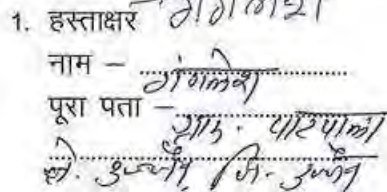 1. हस्ताक्षर गंगलेश
नाम – गंगलेश
पूरा पता –
ग्राम. पाटपाला
उज्जैन, जि. उज्जैन